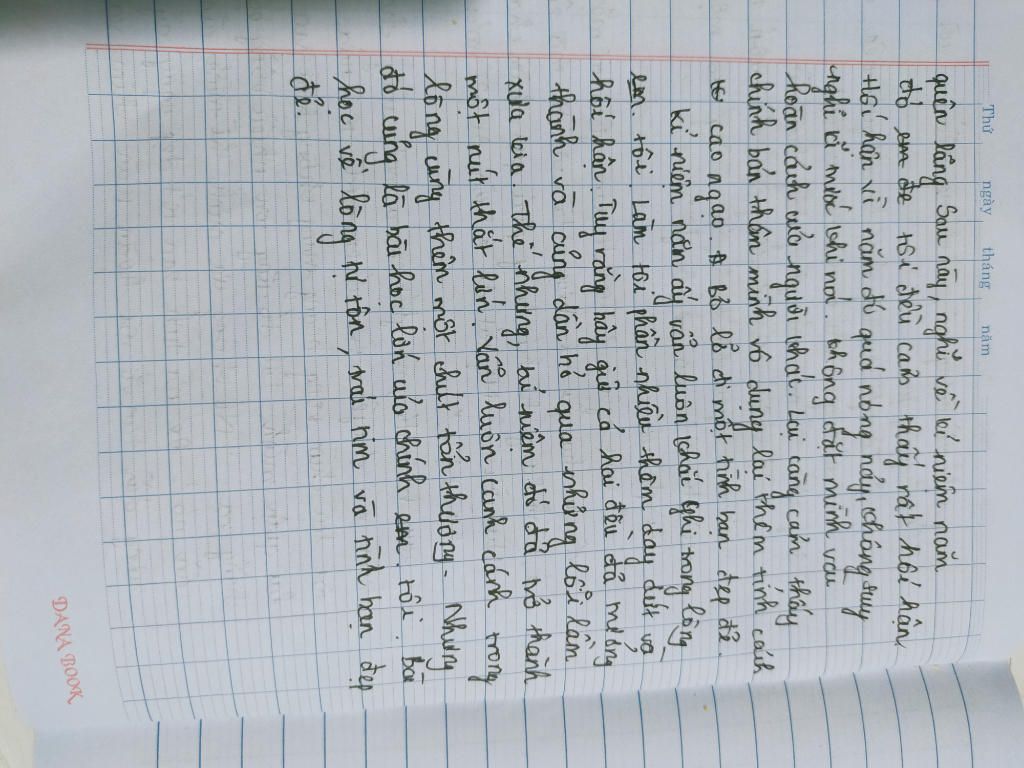 Thứ ngày tháng năm
quên lãng. Sau này, nghĩ về kỉ niệm năm
đó em để tôi đều cảm thấy rất hối hận.
Hối hận vì năm đó quá nóng nảy, không suy
nghĩ kĩ mới khi nói. Không đặt mình vào
hoàn cảnh của người khác. Lại càng cảm thấy
chính bản thân mình vô dụng lại thêm tính cách
cao ngạo. Bỏ lỡ đi một tình bạn đẹp đẽ.
Kỉ niệm năm ấy vẫn luôn khắc ghi trong lòng
em tôi. Làm tôi phần nhiều thêm day dứt và
hối hận. Tuy rằng bây giờ cả hai đều đã trưởng
thành và cũng dần bỏ qua những lỗi lầm
xưa kia. Thế nhưng, kỉ niệm đó đã trở thành
một nút thắt lớn. Vẫn luôn canh cánh trong
lòng cùng thêm một chút tổn thương. Nhưng
đó cũng là bài học lớn của chính em tôi. Bài
học về lòng tự tôn, trái tim và tình bạn đẹp
đẽ.
DANA BOOK